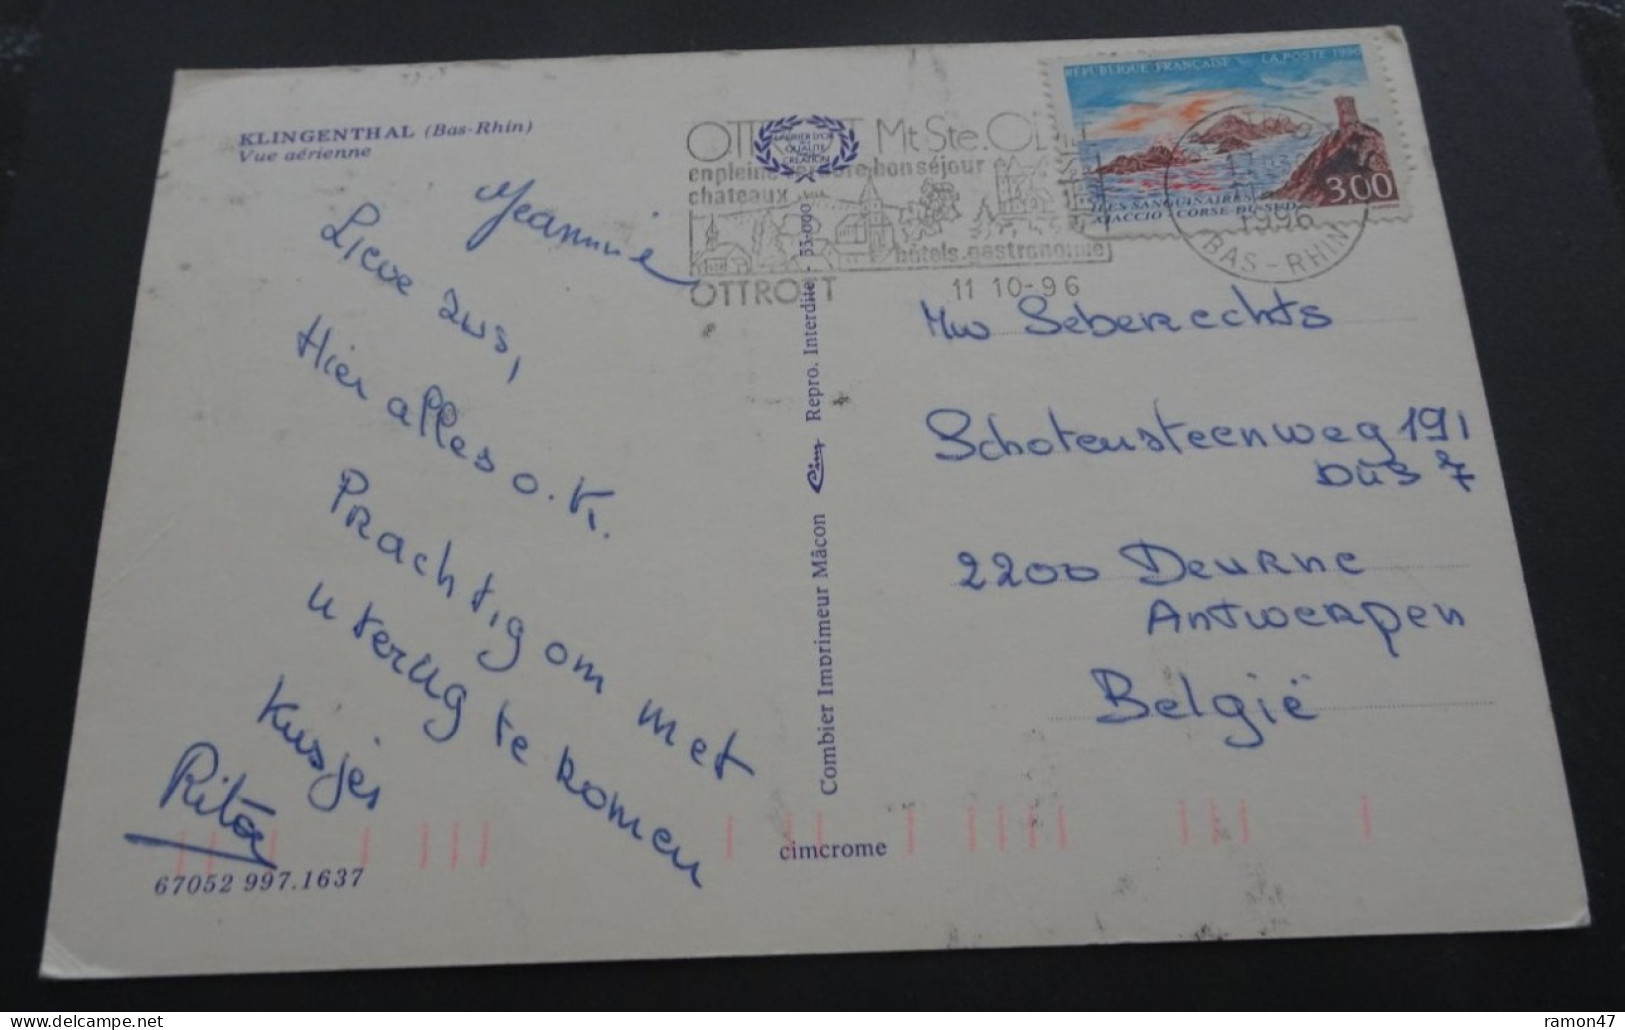 KLINGENTHAL (Bas-Rhin)
Vue aérienne
Jeannine
Lieve zus,
Hier alles o.k.
Prachtig om met
u terug te komen
Kusjes
Rita
67052 997.1637
Combier Imprimeur Mâcon Cim Repro. Interdite - 55-000
cimcrome
LAURIER D'OR
QUALITÉ
CRÉATION
OTTROTT Mt Ste. ODILE
en pleine nature bon séjour
chateaux
hôtels. gastronomie
OTTROTT
11 10-96
1996
BAS-RHIN
RÉPUBLIQUE FRANÇAISE LA POSTE 1996
3,00
ILES SANGUINAIRES
AJACCIO CORSE-DU-SUD
Mw Seberechts
Schotensteenweg 191
bus 7
2200 Deurne
Antwerpen
België
ramon47